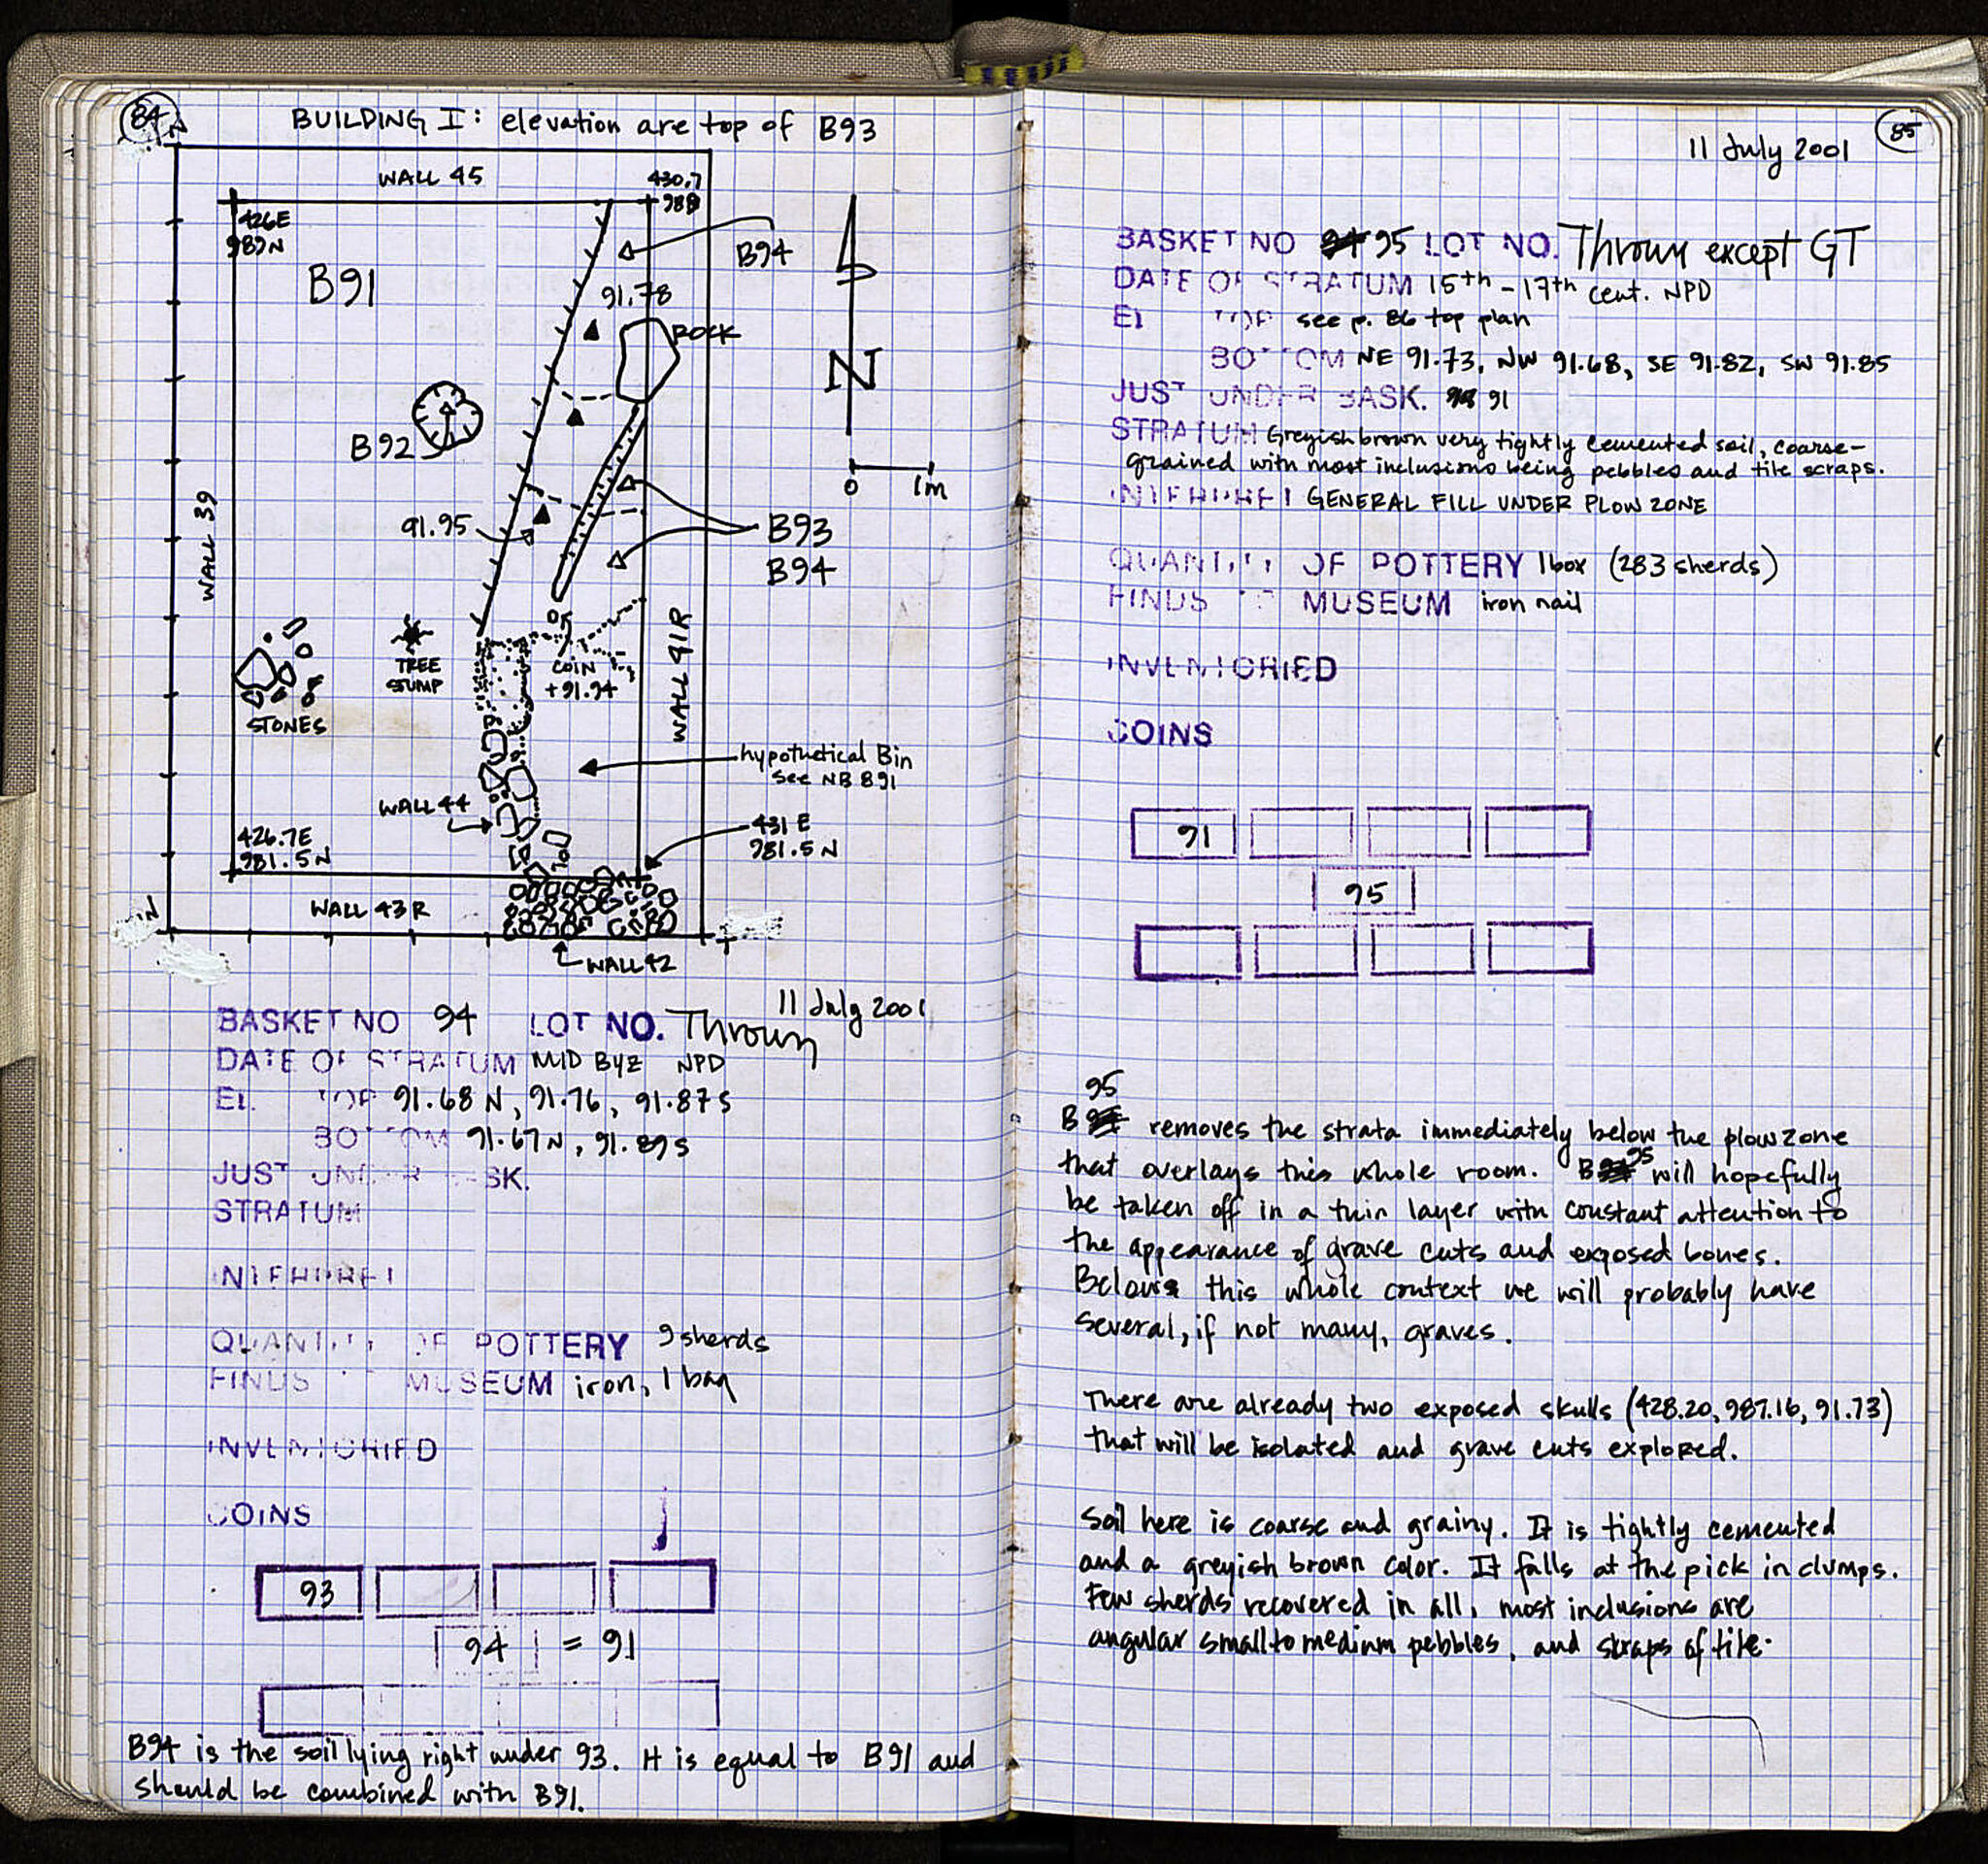 84
BUILDING I: elevation are top of B93
WALL 45
430.7
989
426E
989N
B94
B91
91.78
ROCK
N
B92
0 1m
91.95
B93
B94
WALL 39
WALL 41R
TREE
STUMP
COIN
+91.94
STONES
hypothetical Bin
see NB 891
WALL 44
431 E
981.5 N
426.7E
981.5N
WALL 43R
WALL 42
11 July 2001
BASKET NO 94 LOT NO. Thrown
DATE OF STRATUM MID BYZ NPD
EL. TOP 91.68 N, 91.76, 91.87 S
BOTTOM 91.67 N, 91.89 S
JUST UNDER BASK.
STRATUM
INTERPRET
QUANTITY OF POTTERY 9 sherds
FINDS TO MUSEUM iron, 1 bag
INVENTORIED
COINS
93
94 = 91
B94 is the soil lying right under 93. It is equal to B91 and
should be combined with B91.
85
11 July 2001
BASKET NO 95 LOT NO. Thrown except GT
DATE OF STRATUM 15th - 17th cent. NPD
EL TOP see p. 86 top plan
BOTTOM NE 91.73, NW 91.68, SE 91.82, SW 91.85
JUST UNDER BASK. 91
STRATUM Greyish brown very tightly cemented soil, coarse-
grained with most inclusions being pebbles and tile scraps.
INTERPRET GENERAL FILL UNDER PLOW ZONE
QUANTITY OF POTTERY 1 box (283 sherds)
FINDS TO MUSEUM iron nail
INVENTORIED
COINS
91
95
B 95 removes the strata immediately below the plowzone
that overlays this whole room. B 95 will hopefully
be taken off in a thin layer with constant attention to
the appearance of grave cuts and exposed bones.
Below this whole context we will probably have
several, if not many, graves.
There are already two exposed skulls (428.20, 987.16, 91.73)
that will be isolated and grave cuts explored.
Soil here is coarse and grainy. It is tightly cemented
and a greyish brown color. It falls at the pick in clumps.
Few sherds recovered in all, most inclusions are
angular small to medium pebbles, and scraps of tile.